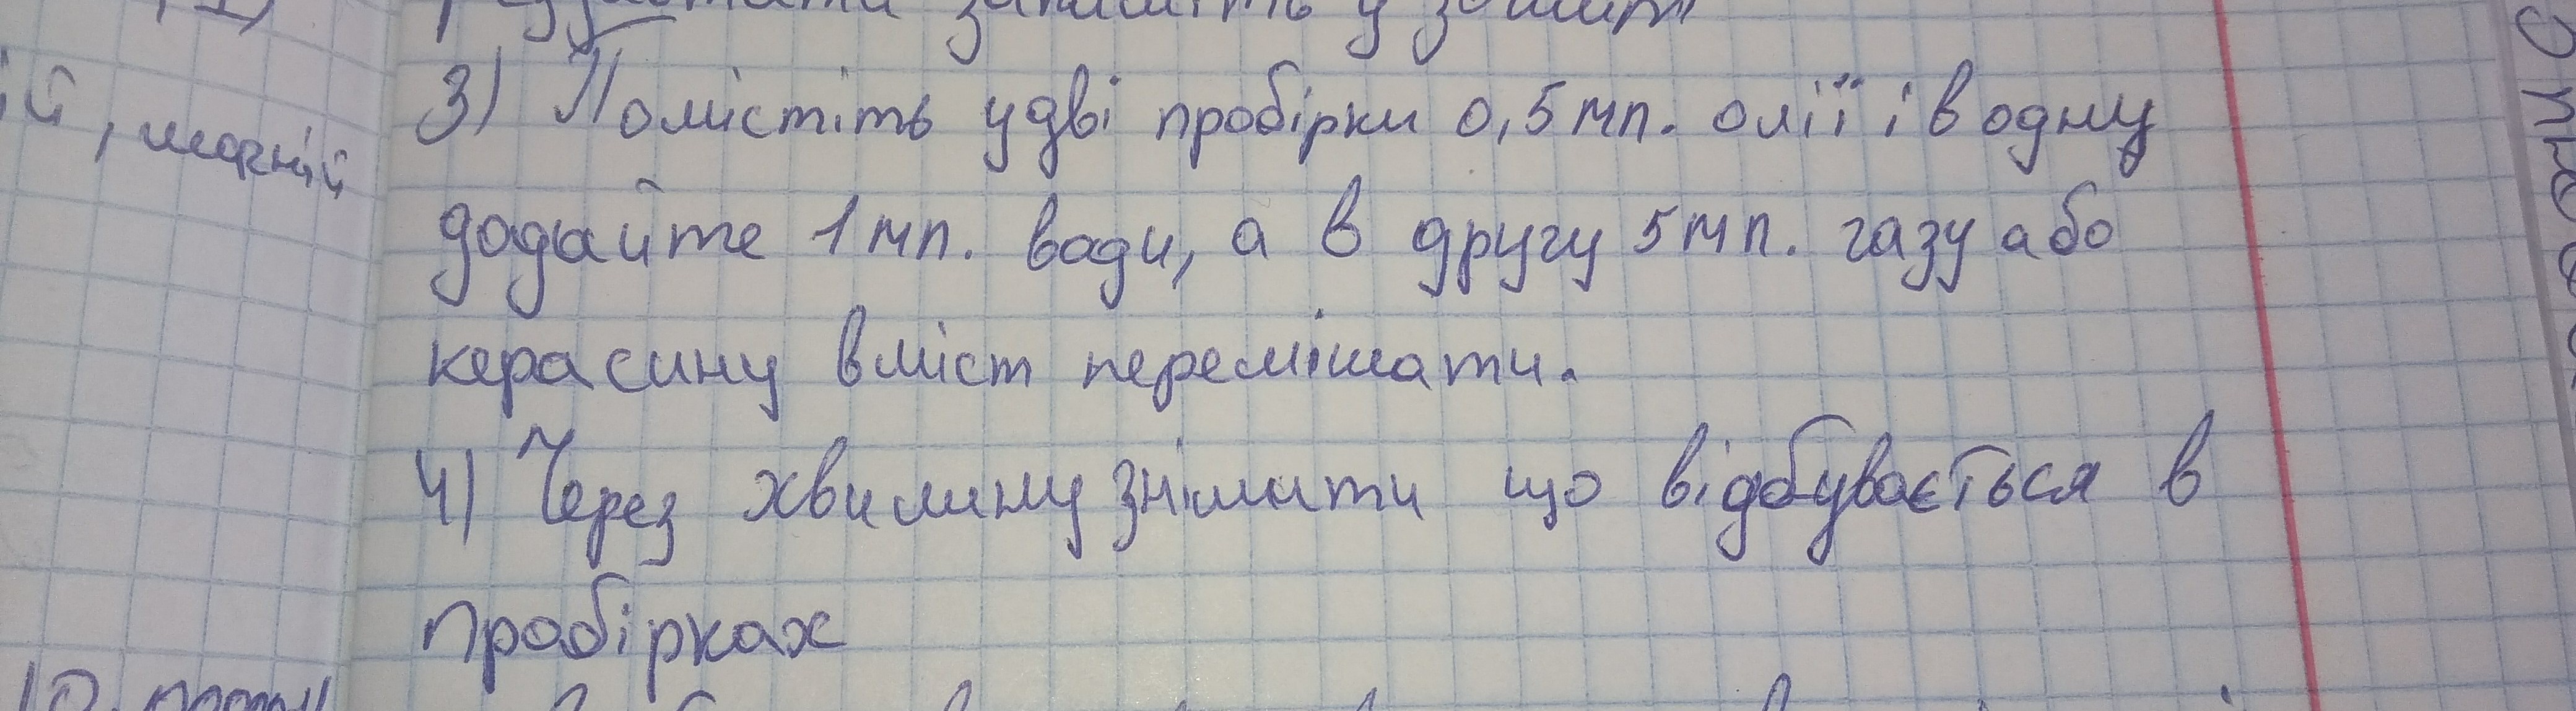 запишіть у зошит
ій, мохній
3) Помістіть у дві пробірки 0,5 мл. олії і в одну
додайте 1 мл. води, а в другу 5 мл. газу або
керасину вміст перемішати.
4) Через хвилину знімити що відбувається в
пробірках